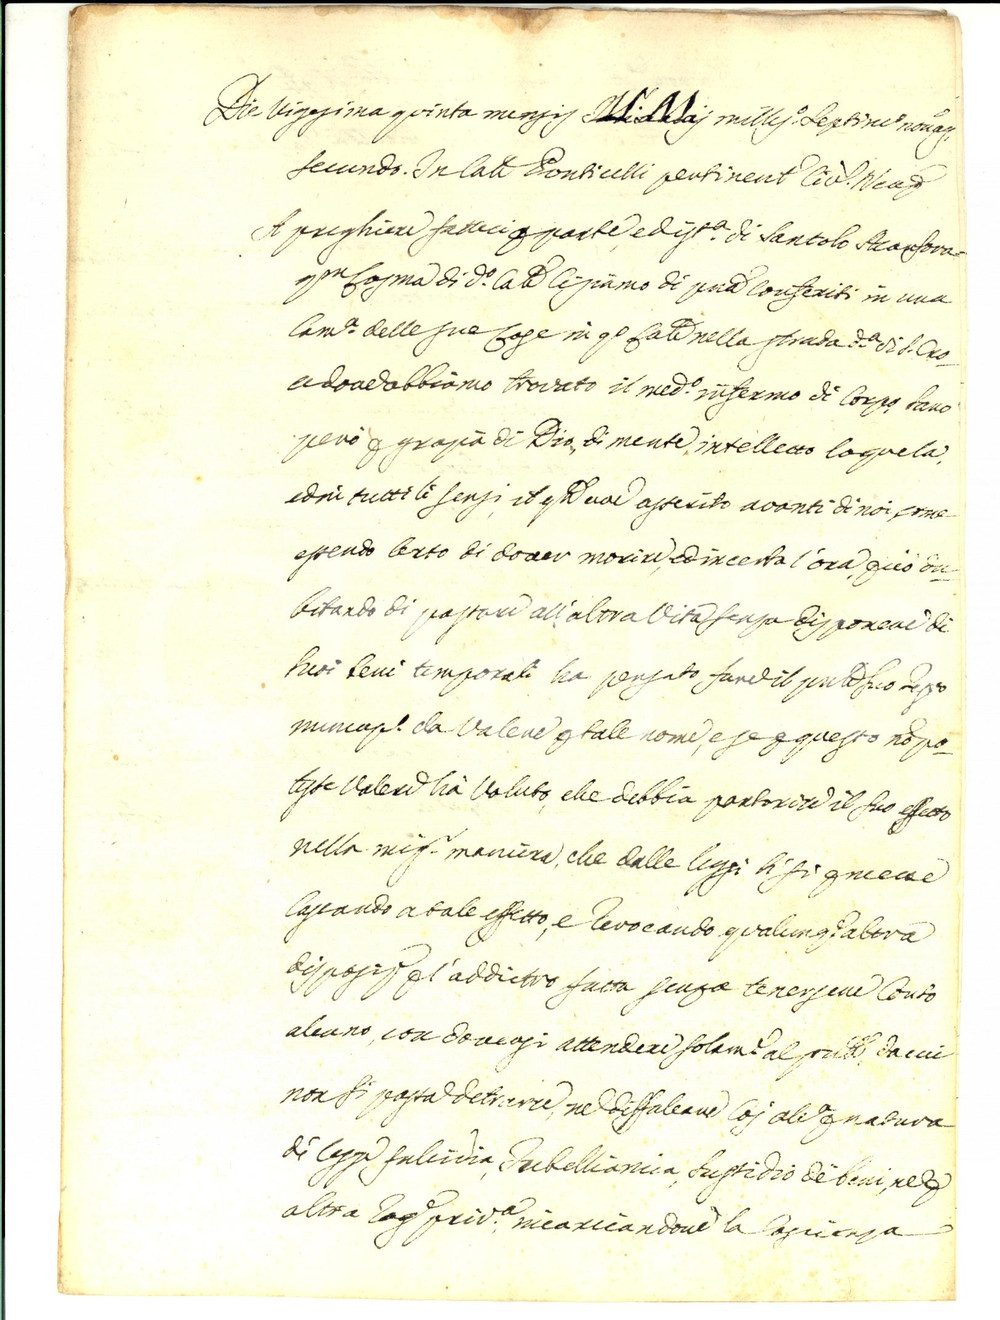 Die Vigesima quinta mensis Maij mill.o Septin.o nonag.
secundo. In Cas.le Ponticelli pertinent. Civ. Neap.
A preghiere fatteci p parte, ed ist.a di Santolo
qm Cosma di d.o Cas.le ci siamo di pnte conferiti in una
Cam.a delle sue Case in q.o Cas.le nella strada d.a di S. Cro-
ce dove abbiamo trovato il med.o infermo di corpo, sano
però p grazia di Dio, di mente, intelletto loquela,
ed in tutti li sensi, il q.le ave asserito avanti di noi, come
essendo certo di dover morire, ed incerta l'ora, p ciò du-
bitando di passare all'altra Vita senza disponere di
suoi beni temporali ha pensato fare il pnte suo Testo
nuncup.o da valere p tale nome, e se p questo no po-
tesse valere hà voluto, che debbia partorire il suo effetto
nella miglr maniera, che dalle leggi li si pmette
cassando a tale effetto, e revocando qualunq. altra
disposiz.e p l'addietro fatta senza tenersene conto
alcuno, con doversi attendere solam.e al pnte, da cui
non si possa detrarre, ne diffalcare cos'alc.a p natura
di legge falcidia, Trebellianica, sussidio de beni, ne p
altra rag.e priv.a, incaricandone la coscienza